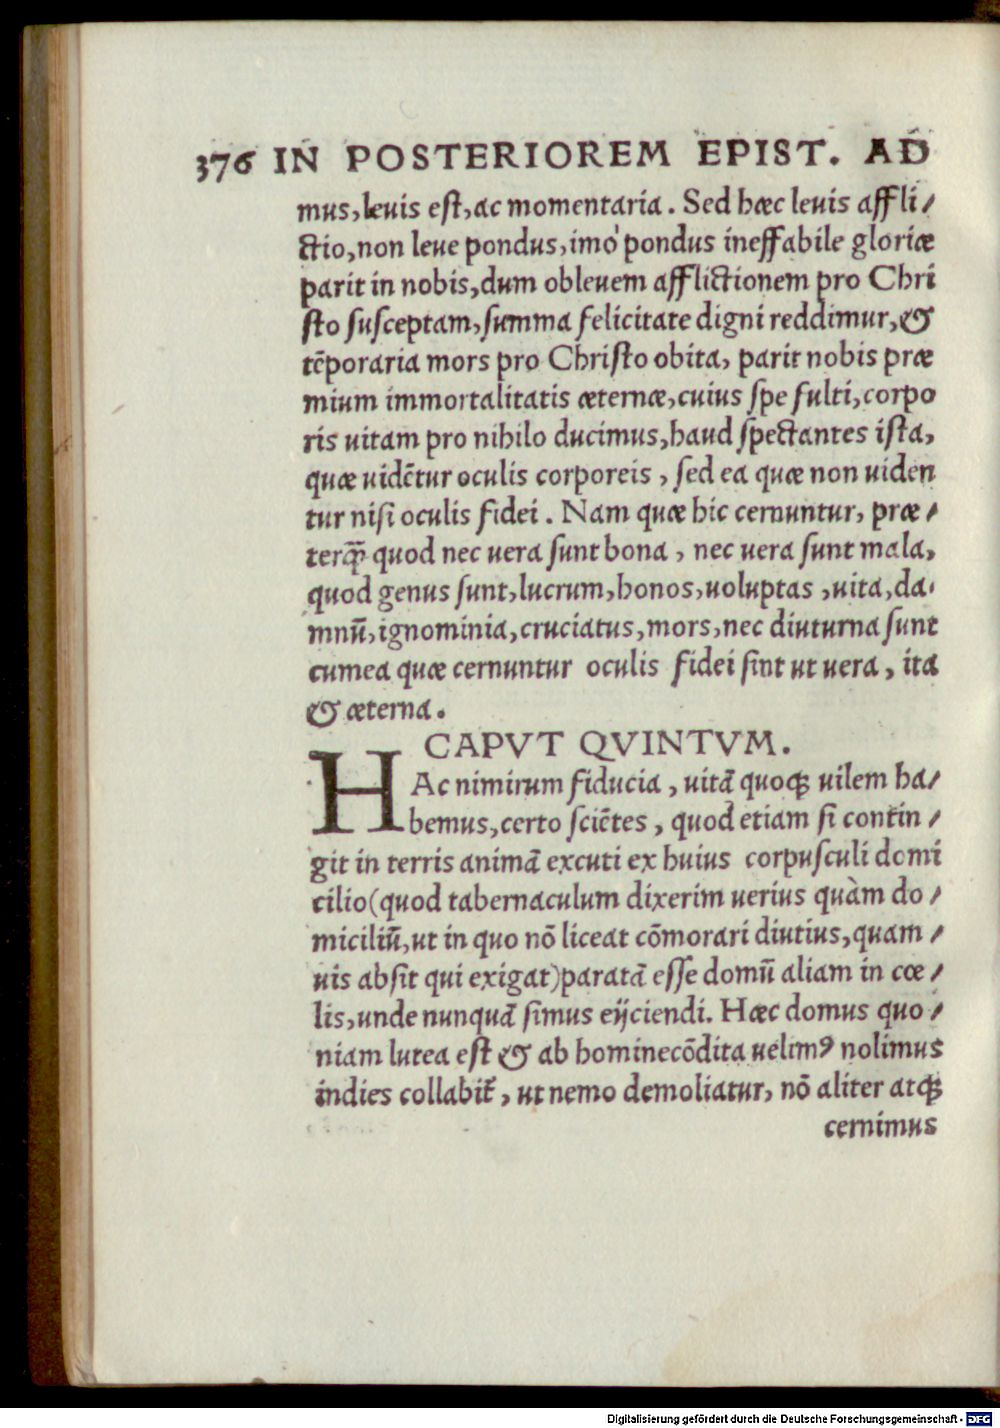 376 IN POSTERIOREM EPIST. AD
mus, leuis est, ac momentaria. Sed hæc leuis affli/
ctio, non leue pondus, imò pondus ineffabile gloriæ
parit in nobis, dum obleuem afflictionem pro Chri
sto susceptam, summa felicitate digni reddimur, &
tēporaria mors pro Christo obita, parit nobis præ
mium immortalitatis æternæ, cuius spe fulti, corpo
ris uitam pro nihilo ducimus, haud spectantes ista,
quæ uidētur oculis corporeis, sed ea quæ non uiden
tur nisi oculis fidei. Nam quæ hic cernuntur, præ/
terq̃ quod nec uera sunt bona, nec uera sunt mala,
quod genus sunt, lucrum, honos, uoluptas, uita, da/
mnū, ignominia, cruciatus, mors, nec diuturna sunt
cumea quæ cernuntur oculis fidei sint ut uera, ita
& æterna.
CAPVT QVINTVM.
HAc nimirum fiducia, uitā quoq; uilem ha/
bemus, certo sciētes, quod etiam si contin/
git in terris animā excuti ex huius corpusculi domi
cilio (quod tabernaculum dixerim uerius quàm do/
miciliū, ut in quo nō liceat cōmorari diutius, quam/
uis absit qui exigat) paratā esse domū aliam in cœ/
lis, unde nunquā simus eijciendi. Hæc domus quo/
niam lutea est & ab hominecōdita uelimꝰ nolimus
indies collabit̃, ut nemo demoliatur, nō aliter atq;
cernimus
Digitalisierung gefördert durch die Deutsche Forschungsgemeinschaft - DFG